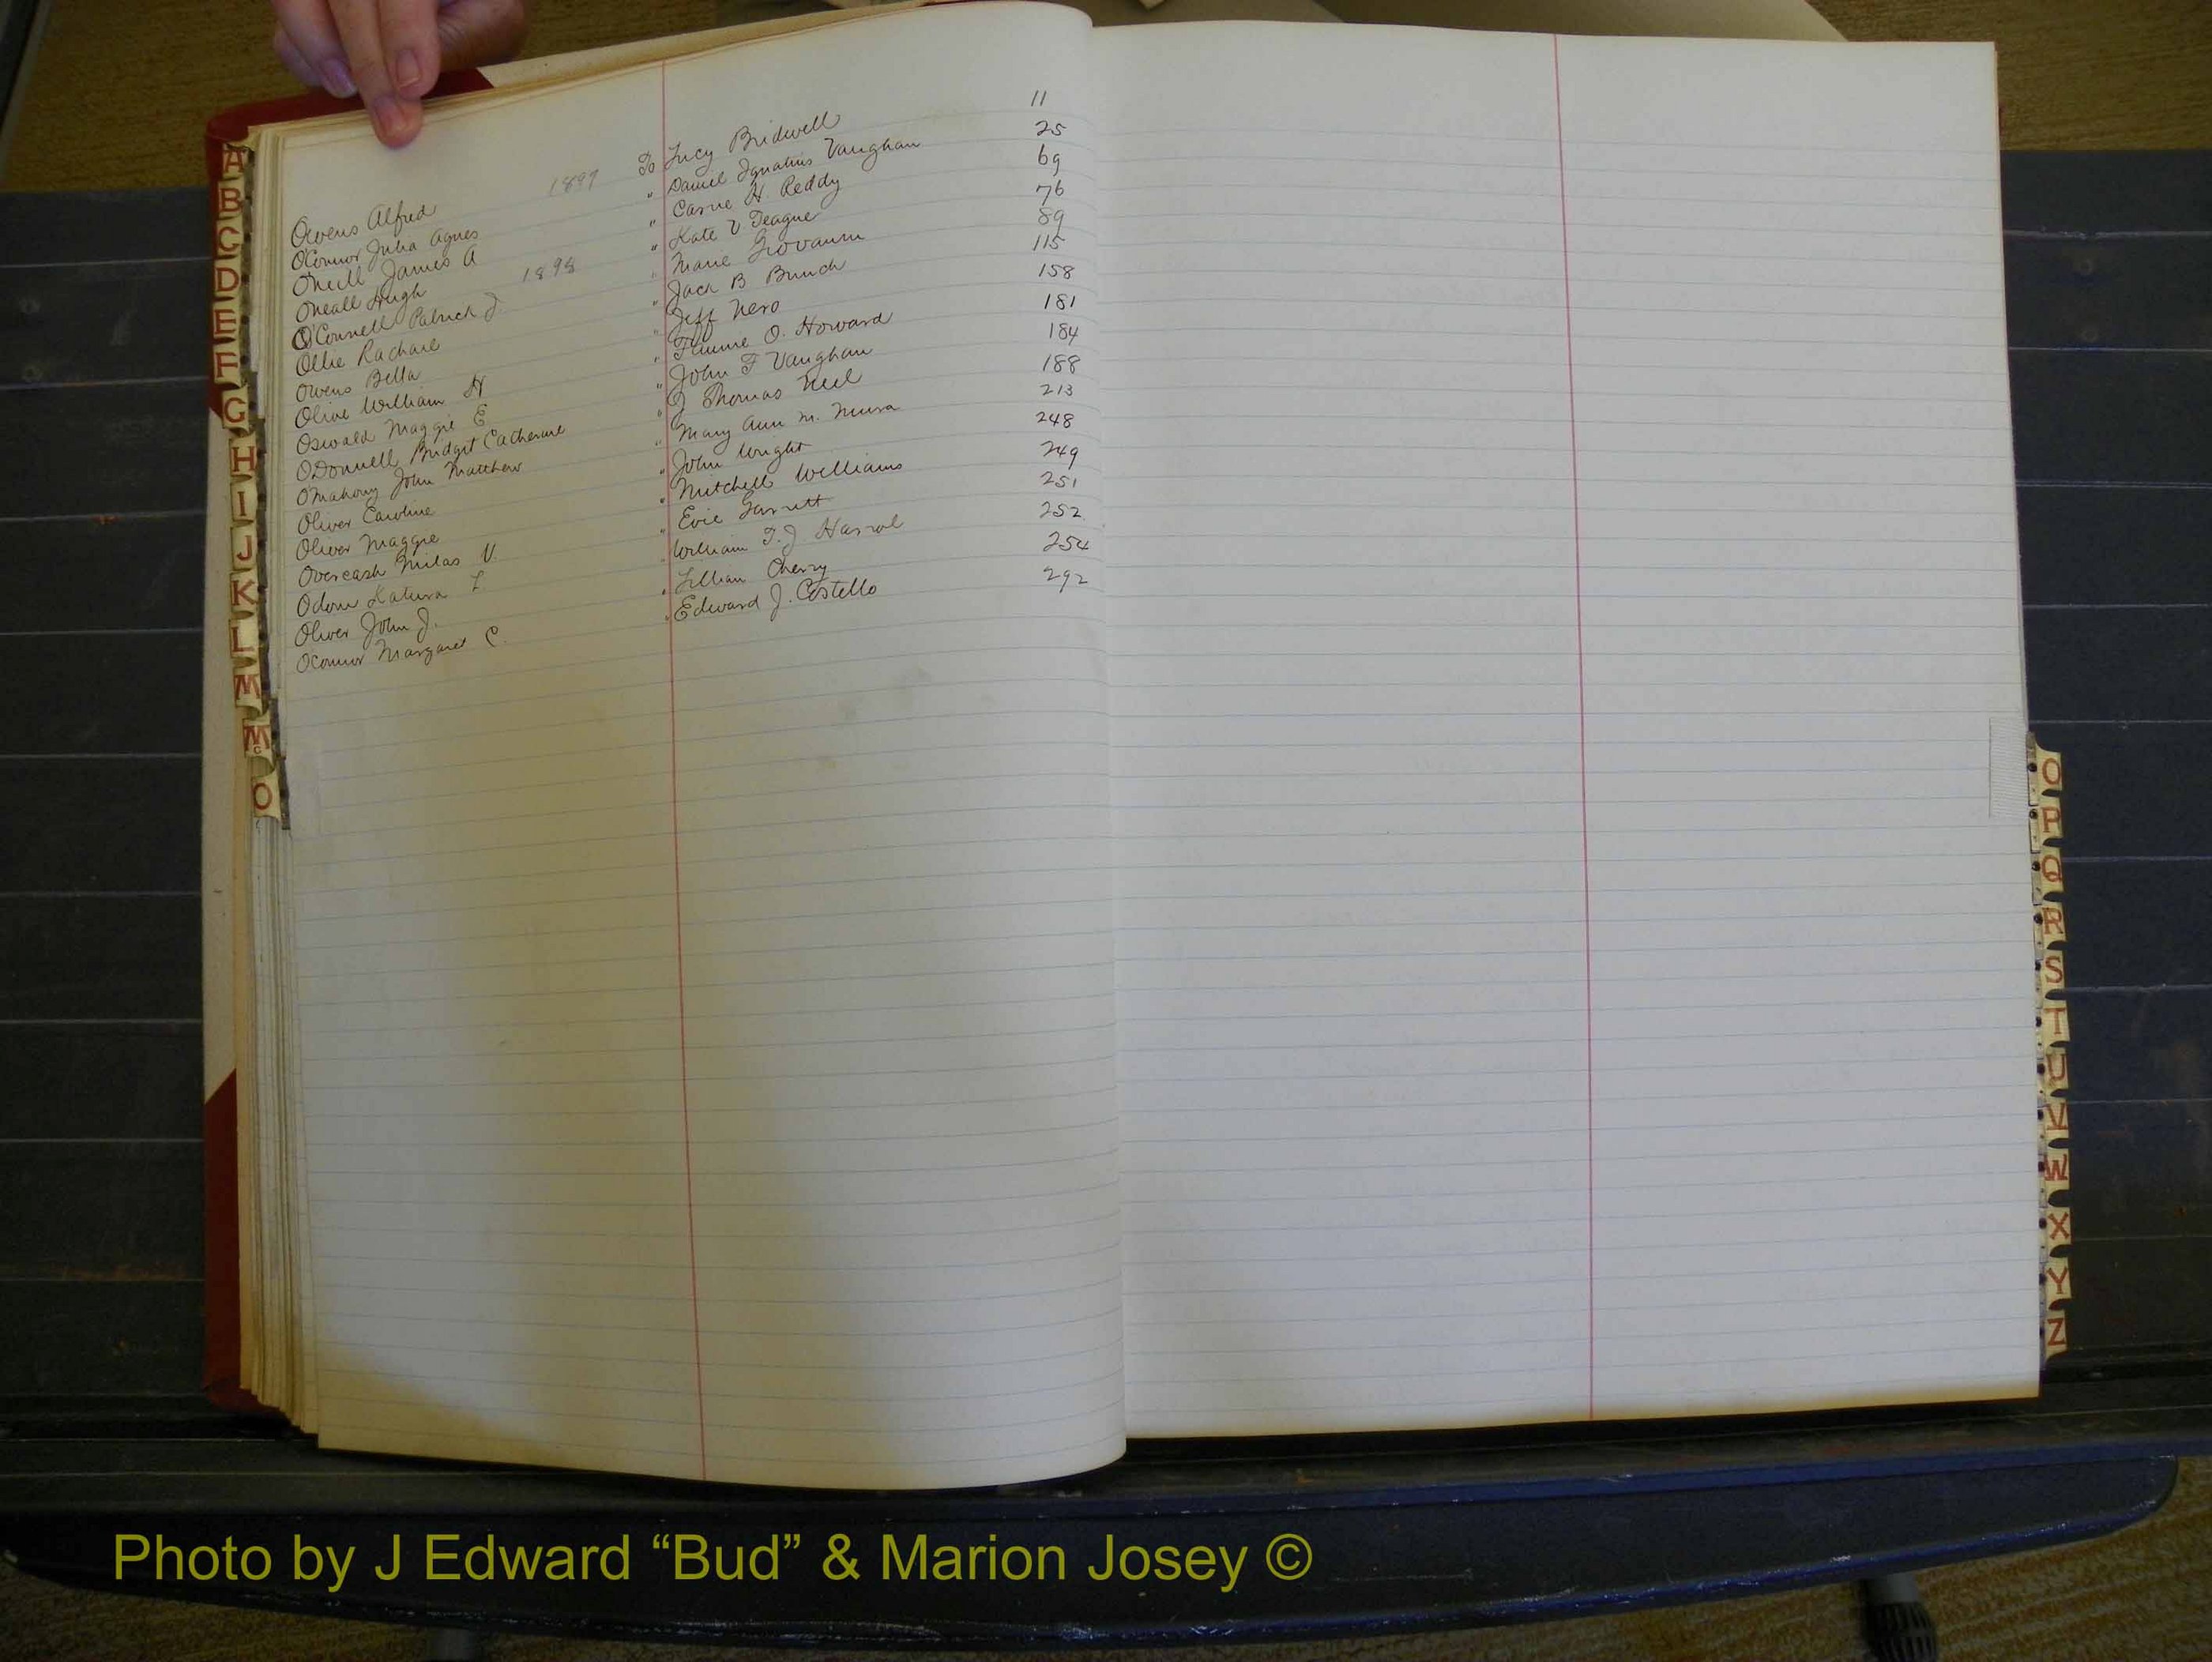 Owens Alfred 1897 To Lucy Bridwell 11
O'Connor Julia Agnes " Daniel Ignatius Vaughan 25
Oneill James A " Carrie H. Reddy 69
Oneall Hugh 1898 " Kate V Teague 76
O'Connell Patrick J " Marie Giovanni 89
Ollie Rachael " Jack B Bunch 115
Owens Bella " Jeff Nero 158
Olive William H " O. Howard 181
Oswald Maggie E " John F Vaughan 184
ODonnell Bridget Catherine " J Thomas Neil 188
O'Mahony John Matthew " Mary Ann M. 213
Oliver Caroline " John Wright 248
Oliver Maggie " Mitchell Williams 249
Overcash Milas V. " Evie Garrett 251
Odom L " William T. J 252
Oliver John J. " Lillian Cherry 254
OConnor Margaret C. " Edward J. Costello 292
A
B
C
D
E
F
G
H
I
J
K
L
M
Mc
O
O
P
Q
R
S
T
U
V
W
X
Y
Z
Photo by J Edward “Bud” & Marion Josey ©